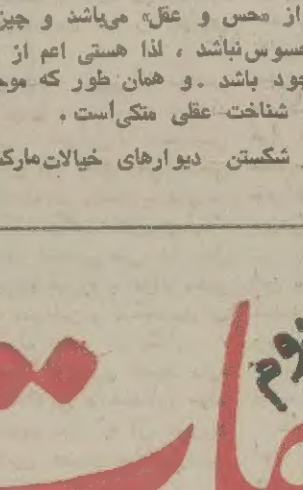 از «حس و عقل» میباشد و چیز
محسوس نباشد ، لذا هستی اعم از
جود باشد . و همان طور که موج
شناخت عقلی متکی است .
شکستن دیوارهای خیالات مارک